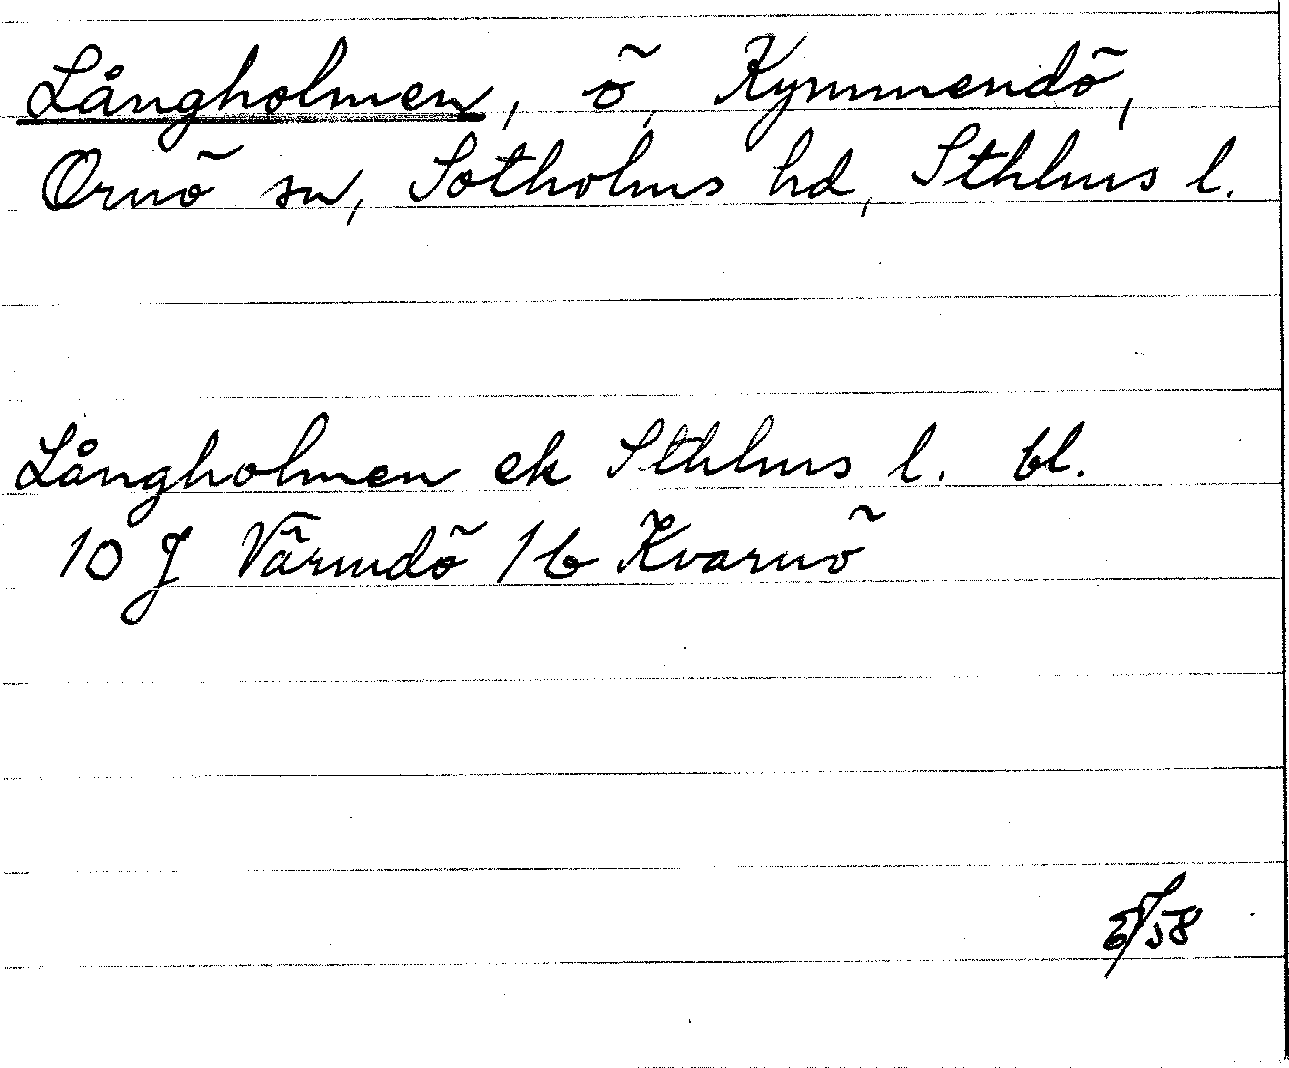 Långholmen, ö, Kymmendö,
Ornö sn, Sotholms hd, Sthlms l.
Långholmen ek Sthlms l. bl.
10 J Värmdö 16 Kvarnö